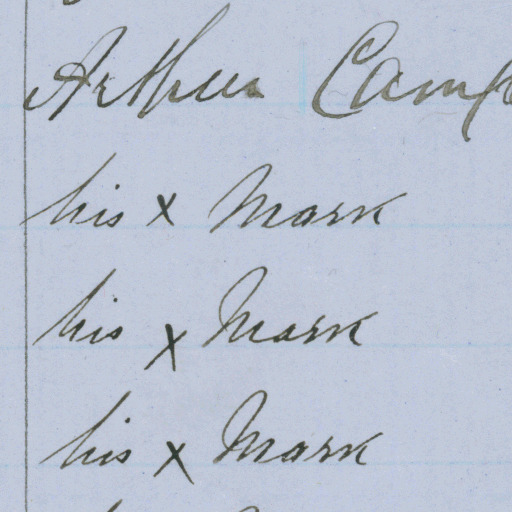 Arthur
his x Mark
his x Mark
his x Mark